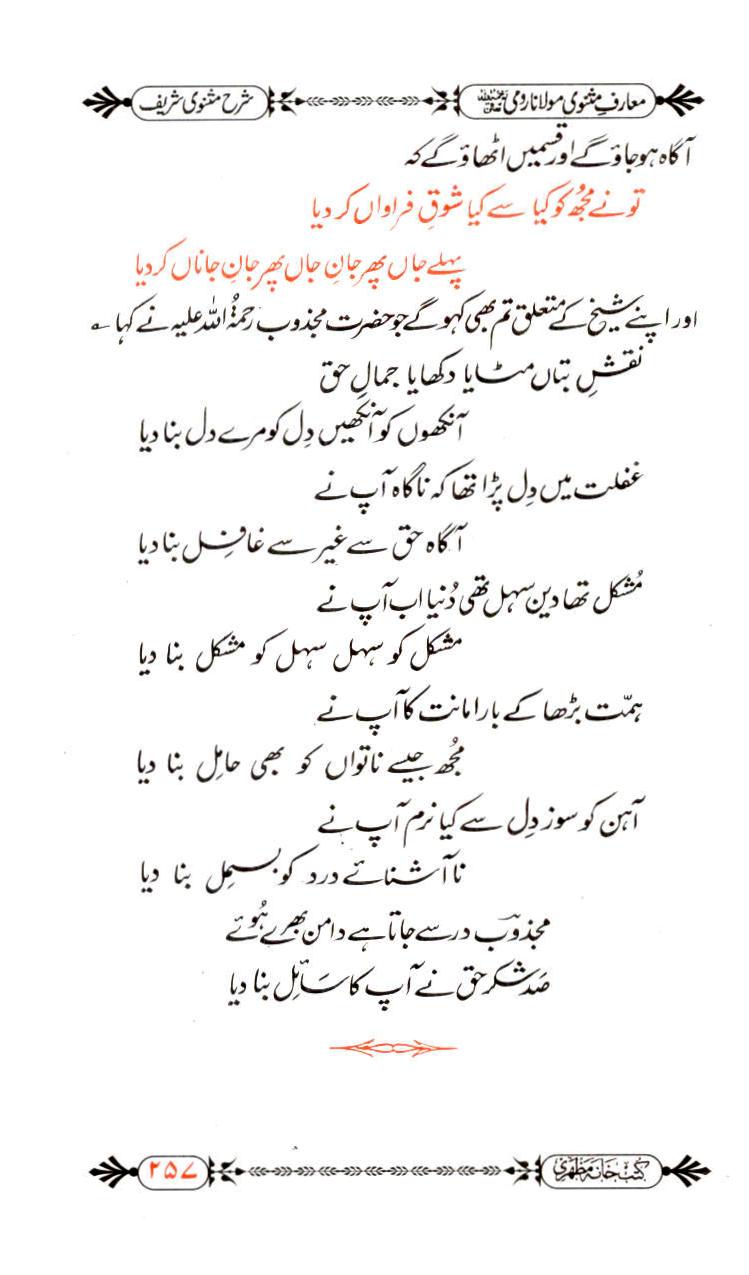 معارفِ مثنوی مولانا رومی رحمۃ اللہ علیہ
شرح مثنوی شریف
آگاہ ہوجاؤ گے اور قسمیں اٹھاؤ گے کہ
تو نے مجھ کو کیا سے کیا شوقِ فراواں کر دیا
پہلے جاں پھر جانِ جاں پھر جانِ جاناں کر دیا
اور اپنے شیخ کے متعلق تم بھی کہو گے جو حضرت مجذوب رحمۃُ اللہ علیہ نے کہا ؎
نقشِ بتاں مٹایا دکھایا جمالِ حق
آنکھوں کو آنکھیں دِل کو مرے دل بنا دیا
غفلت میں دِل پڑا تھا کہ ناگاہ آپ نے
آگاہ حق سے غیر سے غافِل بنا دیا
مُشکل تھا دین سہل تھی دُنیا اب آپ نے
مشکل کو سہل سہل کو مشکل بنا دیا
ہمّت بڑھا کے بار امانت کا آپ نے
مُجھ جیسے ناتواں کو بھی حامِل بنا دیا
آہن کو سوز دِل سے کیا نرم آپ نے
ناآشنائے درد کو بسمِل بنا دیا
مجذوبؔ در سے جاتا ہے دامن بھرے ہُوئے
صَد شکر حق نے آپ کا سَائِل بنا دیا
کتب خانہ مظہری
۲۵۷